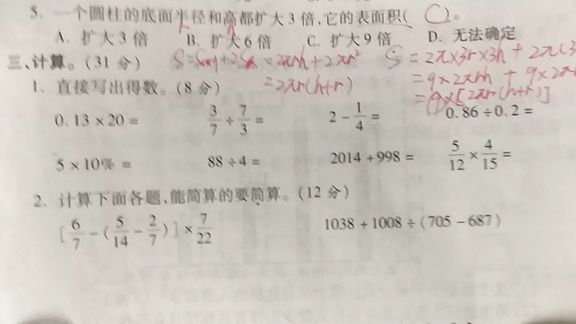 5. 一个圆柱的底面半径和高都扩大3倍,它的表面积( C )。
A. 扩大3倍 B. 扩大6倍 C. 扩大9倍 D. 无法确定
三、计算。(31分)
S=S侧+2S底=2πrh+2πr²
=2πr(h+r)
S = 2π×3r×3h + 2π(3
= 9×2πrh + 9×2π
= 9×[2πr(h+r)]
1. 直接写出得数。(8分)
0.13×20= 3/7÷7/3= 2-1/4= 0.86÷0.2=
5×10%= 88÷4= 2014+998= 5/12×4/15=
2. 计算下面各题,能简算的要简算。(12分)
[6/7-(5/14-2/7)]×7/22 1038+1008÷(705-687)